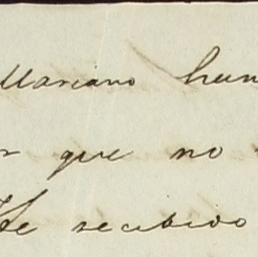 Mariano
que no
He recibido